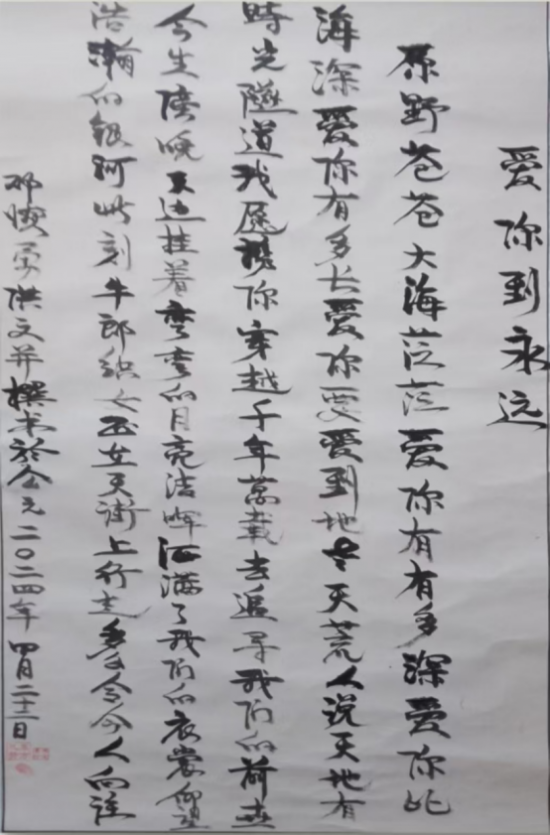 爱你到永远
原野苍苍大海茫茫爱你有有多深爱你比
海深爱你有多长爱你要爱到地老天荒人说天地有
時光隧道我愿携你穿越千年萬载去追寻我们的前世
今生傍晚天边挂着弯弯的月亮洁晖洒满了我们的衣裳仰望
浩瀚的银河此刻牛郎织女正在天街上行走多么令今人向往
邓 洪文并撰书於公元二〇二四年四月二十二日